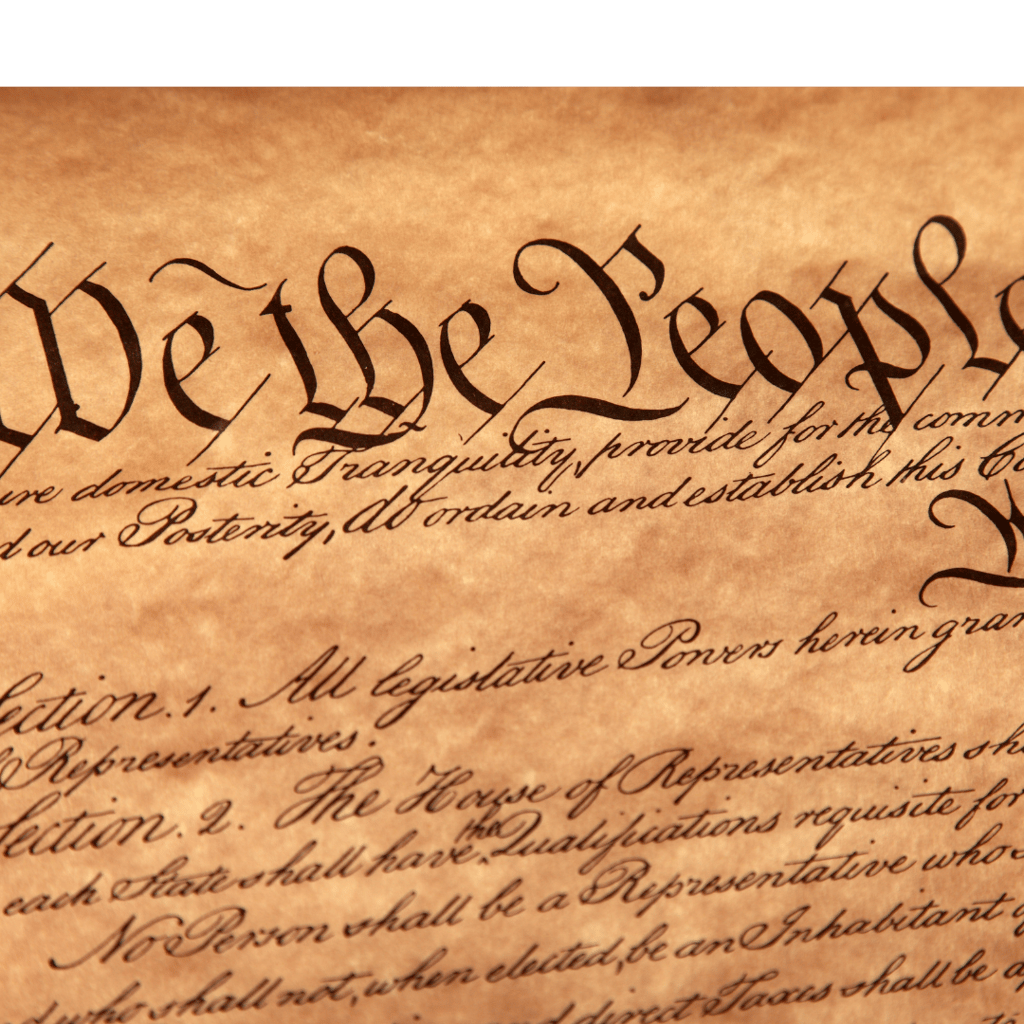 We the People
ure domestic Tranquility, provide for the comm
d our Posterity, do ordain and establish this Co
ection. 1. All legislative Powers herein gran
Representatives.
Section. 2. The House of Representatives sh
each State shall have the Qualifications requisite for
No Person shall be a Representative who s
d who shall not, when elected, be an Inhabitant o
and direct Taxes shall be ap